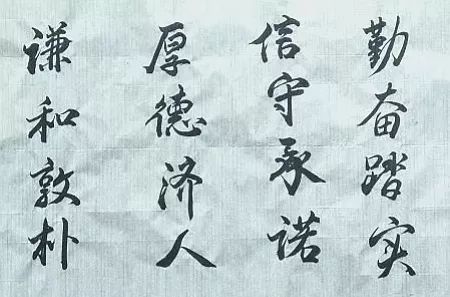 勤奋踏实
信守承诺
厚德济人
谦和敦朴